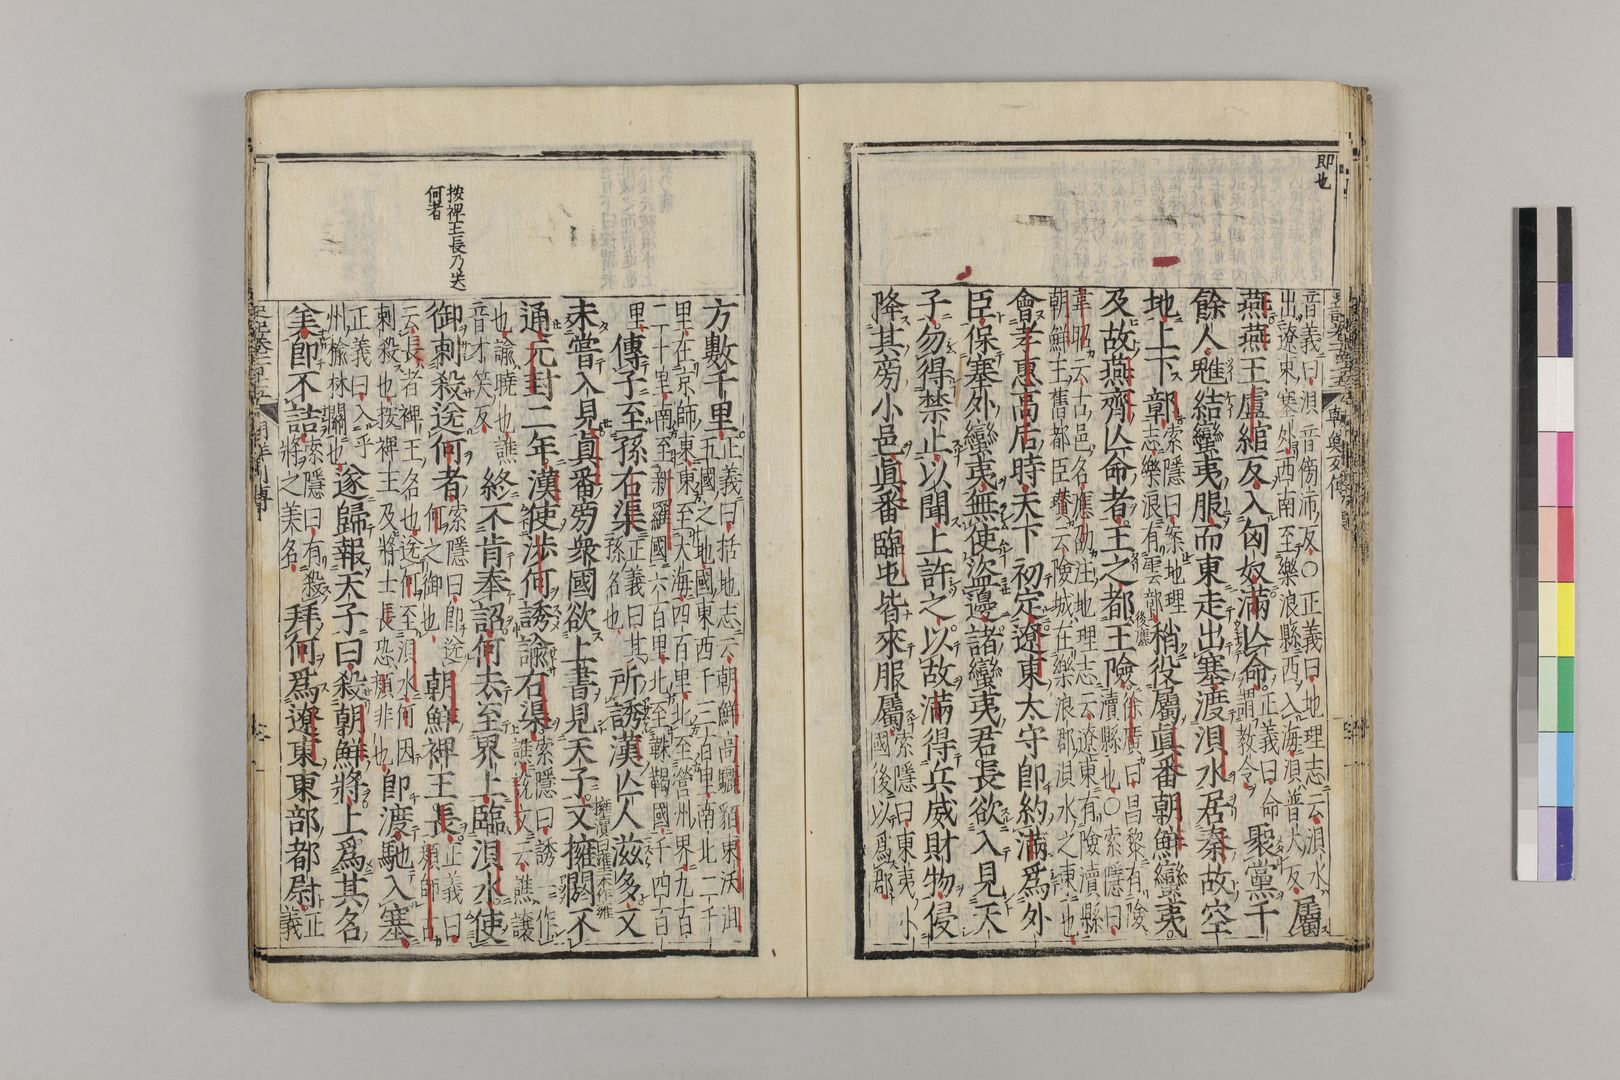 即也
音義曰浿音傍沛反○正義曰地理志云浿水
出遼東塞外西南至樂浪縣西入海浿普大反 屬
燕燕王盧綰反入匈奴滿亡命正義曰命謂教令聚黨千
餘人魋結蠻夷服而東走出塞渡浿水居秦故空
地上下鄣索隱曰案地理志樂浪有雲鄣稍役屬眞番朝鮮蠻夷
及故燕齊亡命者王之都王險徐廣曰昌黎有險瀆縣也○索隱曰
韋昭云古邑名應劭注地理志云遼東有險瀆縣
朝鮮王舊都臣瓚云險城在樂浪郡浿水之東也
會孝惠高后時天下初定遼東太守卽約滿爲外
臣保塞外蠻夷無使盗邊諸蠻夷君長欲入見天
子勿得禁止以聞上許之以故滿得兵威財物侵
降其旁小邑眞番臨屯皆來服屬索隱曰東夷小國後以爲郡
方數千里正義曰括地志云朝鮮高驪貊東沃沮
五國之地國東西千三百里南北二千
里在京師東東至大海四百里北至營州界九百
二十里南至新羅國六百里北至靺鞨國千四百
里 傳子至孫右渠正義曰其孫名也所誘漢亡人滋多又
未嘗入見眞番旁衆國欲上書見天子又擁閼不
通元封二年漢使涉何誘諭右渠索隱曰誘一作
譙說文云譙讓
也諭曉也譙音才笑反 終不肯奉詔何去至界上臨浿水使
御刺殺送何者索隱曰卽送何之御也朝鮮裨王長正義曰顔師古
云長者裨王名也送何至浿水何因
刺殺也按裨王及將士長恐顔非也卽渡馳入塞
正義曰入平州榆林關也遂歸報天子曰殺朝鮮將上爲其名
美卽不詰索隱曰有殺將之美名拜何爲遼東東部都尉正義
按裨王長乃送
何者